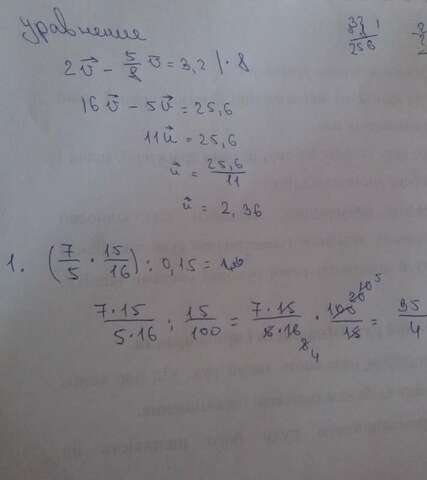 уравнение
2v⃗ − 5/8 v⃗ = 3,2 | · 8
16v⃗ − 5v⃗ = 25,6
11u⃗ = 25,6
u⃗ = 25,6/11
u⃗ = 2,36
1. (7/5 · 15/16) : 0,15 =
7·15/5·16 : 15/100 = 7·15/5·16 · 100/15 = 35/4